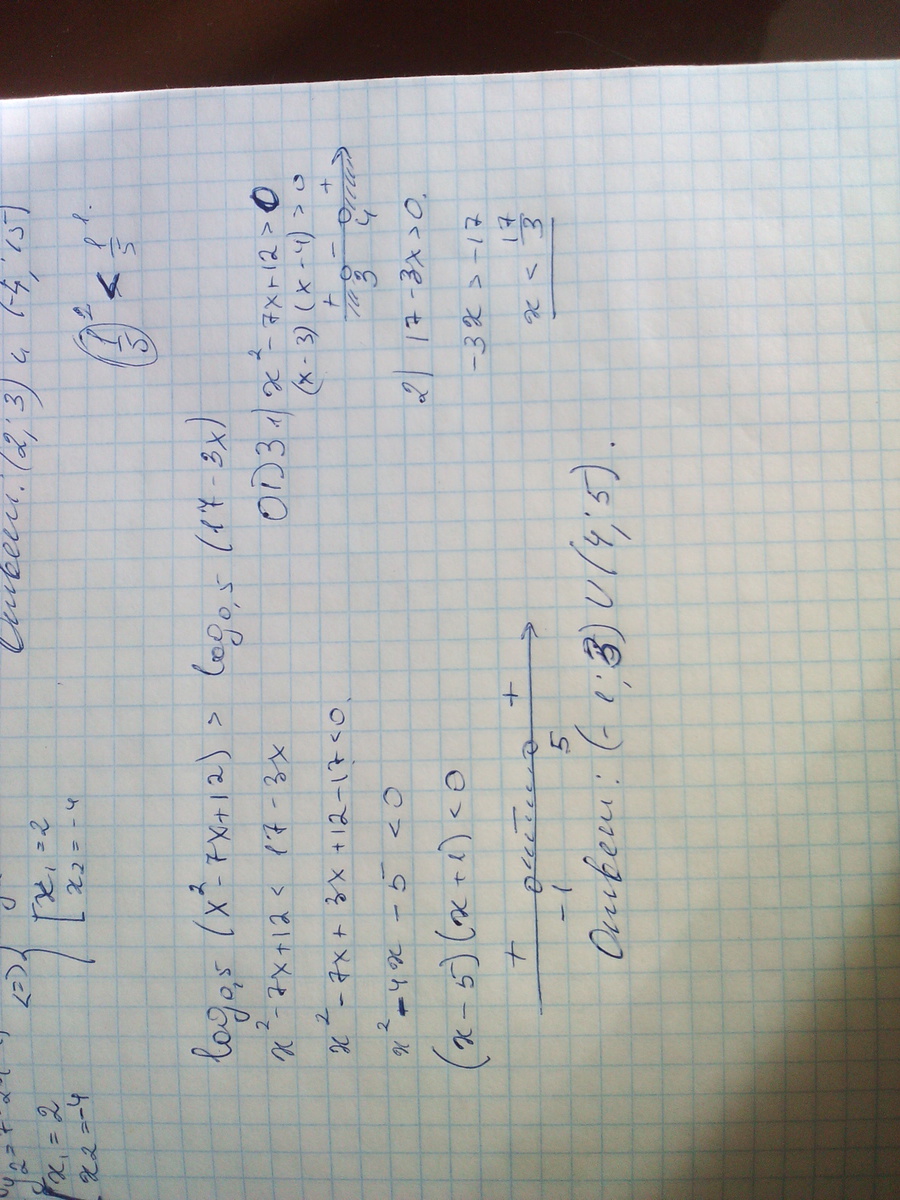 x₁ = 2
x₂ = -4
<=>
x₁ = 2
x₂ = -4
Ответ: (2; 3) и (-4; 15)
(1/5)² < 1/5¹.
log₀,₅ (x² - 7x + 12) > log₀,₅ (17 - 3x)
x² - 7x + 12 < 17 - 3x
x² - 7x + 3x + 12 - 17 < 0.
x² - 4x - 5 < 0
(x - 5)(x + 1) < 0
+ - +
-1 5
Ответ: (-1; 3) ∪ (4; 5).
ОДЗ 1) x² - 7x + 12 > 0
(x - 3)(x - 4) > 0
+ - +
3 4
2) 17 - 3x > 0.
-3x > -17
x < 17/3